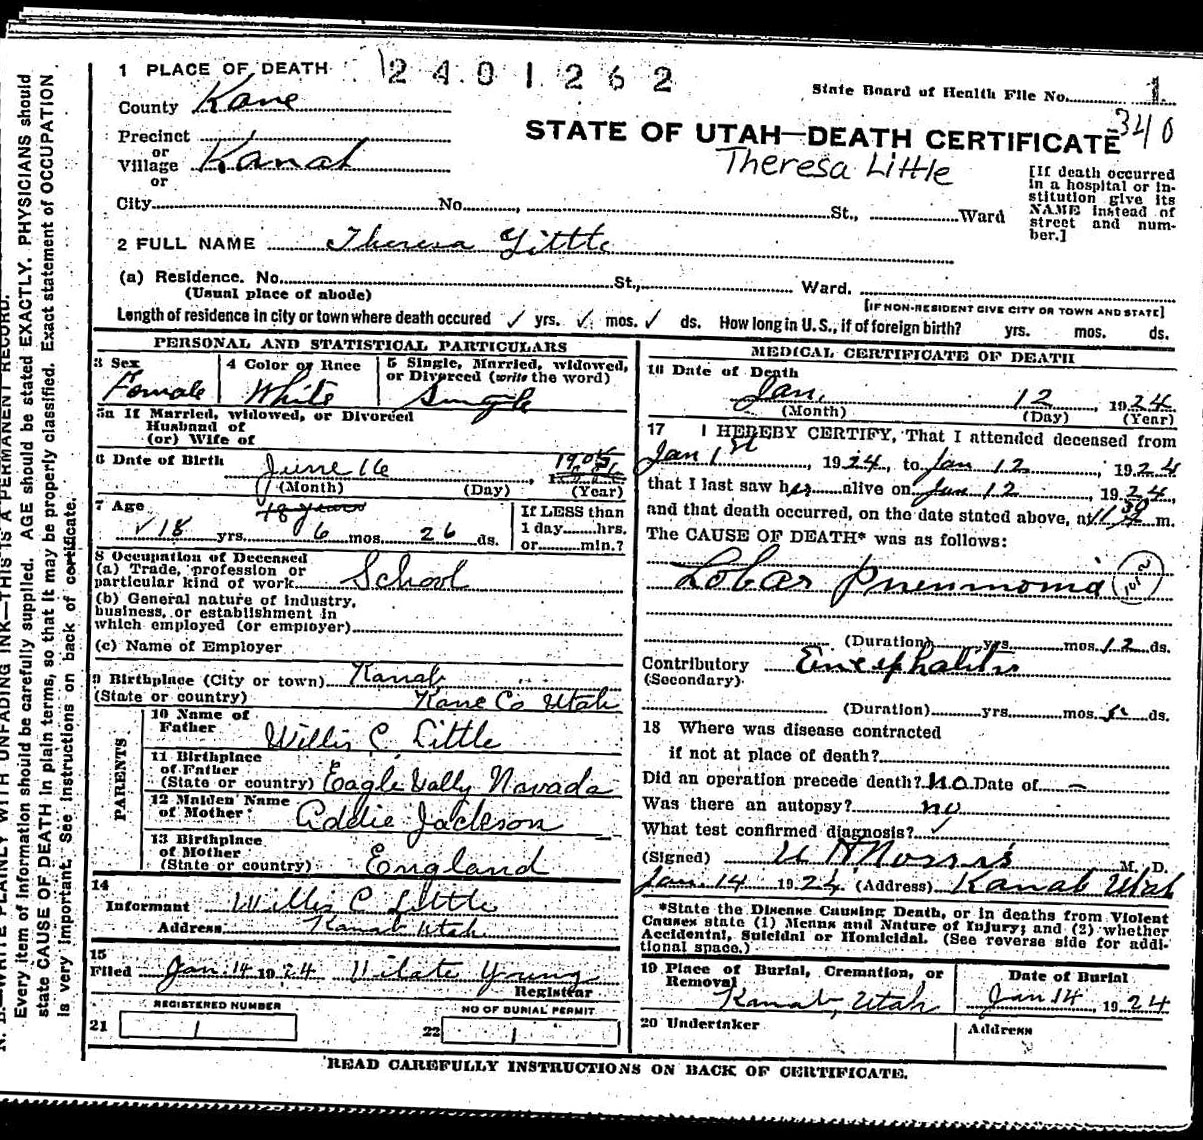 1 PLACE OF DEATH
2401262
State Board of Health File No. 1
340
County Kane
STATE OF UTAH—DEATH CERTIFICATE
Theresa Little
Precinct
or
Village Kanab
or
City No. St., Ward
[If death occurred in a hospital or institution give its NAME instead of street and number.]
2 FULL NAME Theresa Little
(a) Residence. No. St., Ward.
(Usual place of abode)
[IF NON-RESIDENT GIVE CITY OR TOWN AND STATE]
Length of residence in city or town where death occured ✓ yrs. ✓ mos. ✓ ds. How long in U. S., if of foreign birth? yrs. mos. ds.
PERSONAL AND STATISTICAL PARTICULARS
3 Sex
Female
4 Color or Race
White
5 Single, Married, widowed, or Divorced (write the word)
Single
5a If Married, widowed, or Divorced
Husband of
(or) Wife of
6 Date of Birth
June 16 1905
(Month) (Day) (Year)
7 Age
18 years
✓ 18 yrs. 6 mos. 26 ds.
If LESS than
1 day hrs.
or min.?
8 Occupation of Deceased
(a) Trade, profession or
particular kind of work School
(b) General nature of industry,
business, or establishment in
which employed (or employer)
(c) Name of Employer
9 Birthplace (City or town) Kanab
(State or country) Kane Co Utah
PARENTS
10 Name of
Father Willis C Little
11 Birthplace
of Father
(State or country) Eagle Vally Navada
12 Maiden Name
of Mother Addie Jackson
13 Birthplace
of Mother
(State or country) England
14
Informant Willis C Little
Address Kanab Utah
15
Filed Jan. 14 1924 Young
Registrar
REGISTERED NUMBER
21 1
NO OF BURIAL PERMIT
22 1
MEDICAL CERTIFICATE OF DEATH
16 Date of Death
Jan. 12 1924
(Month) (Day) (Year)
17 I HEREBY CERTIFY, That I attended deceased from
Jan 1st, 1924, to Jan 12, 1924
that I last saw her alive on Jan 12, 1924,
and that death occurred, on the date stated above, at 11 30 m.
The CAUSE OF DEATH* was as follows:
Lobar Pneumonia
(Duration) yrs. mos. 12 ds.
Contributory Encephalitis
(Secondary)
(Duration) yrs. mos. ds.
18 Where was disease contracted
if not at place of death?
Did an operation precede death? no Date of –
Was there an autopsy? no
What test confirmed diagnosis? ✓
(Signed) Norris M. D.
Jan. 14 1924. (Address) Kanab Utah
*State the Disease Causing Death, or in deaths from Violent
Causes state (1) Means and Nature of Injury; and (2) whether
Accidental, Suicidal or Homicidal. (See reverse side for addi-
tional space.)
19 Place of Burial, Cremation, or
Removal
Kanab, Utah
Date of Burial
Jan 14, 1924
20 Undertaker
Address
READ CAREFULLY INSTRUCTIONS ON BACK OF CERTIFICATE.
N. B.—WRITE PLAINLY WITH UNFADING INK—THIS IS A PERMANENT RECORD.
Every item of information should be carefully supplied. AGE should be stated EXACTLY. PHYSICIANS should
state CAUSE OF DEATH in plain terms, so that it may be properly classified. Exact statement of OCCUPATION
is very important. See instructions on back of certificate.